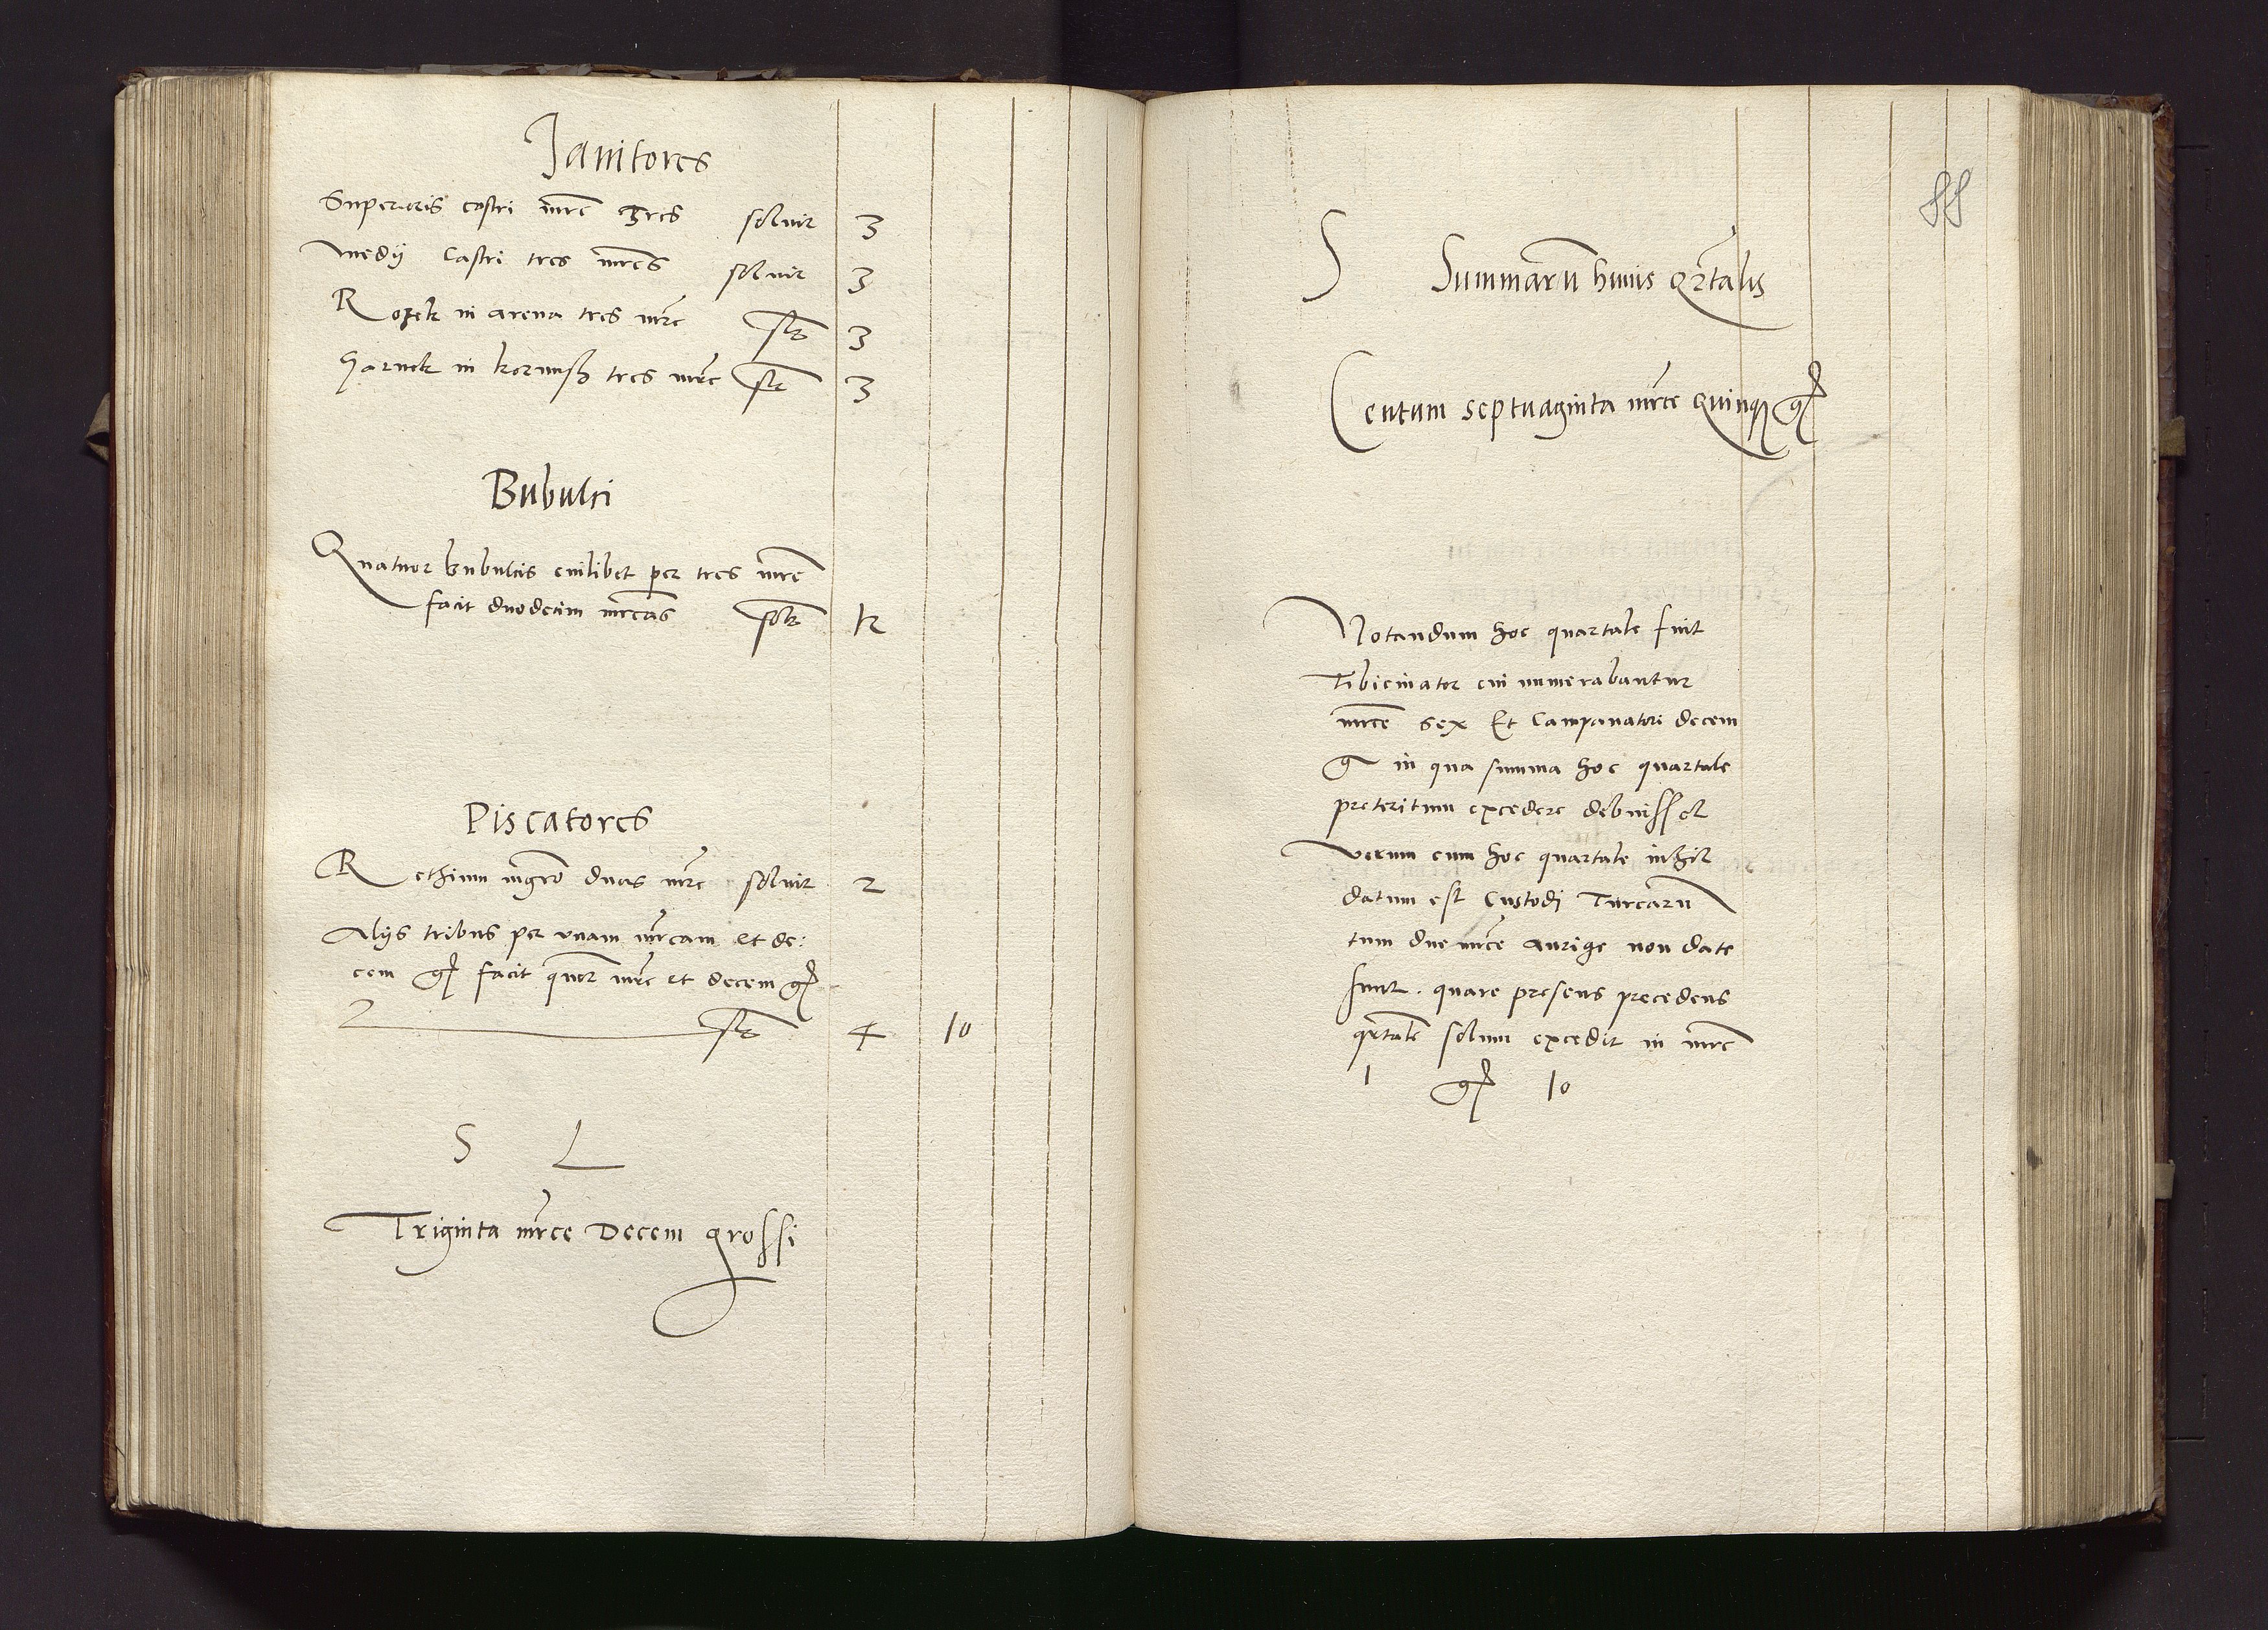 Janitores
Superioris castri mrc Tres soluit 3
medij Castri tres mrcs soluit 3
in arena tres mrc slt 3
in tres mrc slt 3
Bubulci
Quatuor bubulcis cuilibet per tres mrc
facit duodecim mrcas solt 12
Piscatores
duas mrc soluit 2
Alijs tribus per vnam mrcam et de:
cem g facit quor mrc et decem g
slt 4 10
S L
Triginta mrce Decem grossi
88
S Summaru huius Qrtalis
Centum septuaginta mrce Quinq g
Notandum hoc quartale fuit
Tibicinator cui numerabantur
mrce sex Et Campanatori decem
g in qua summa hoc quartale
preteritum excedere debuisset
verum cum hoc quartale nihil
datum est Custodj Turcaru
tum due mrce aurige non date
sunt. quare presens precedens
qrtale solum excedit in mrc
1 g 10